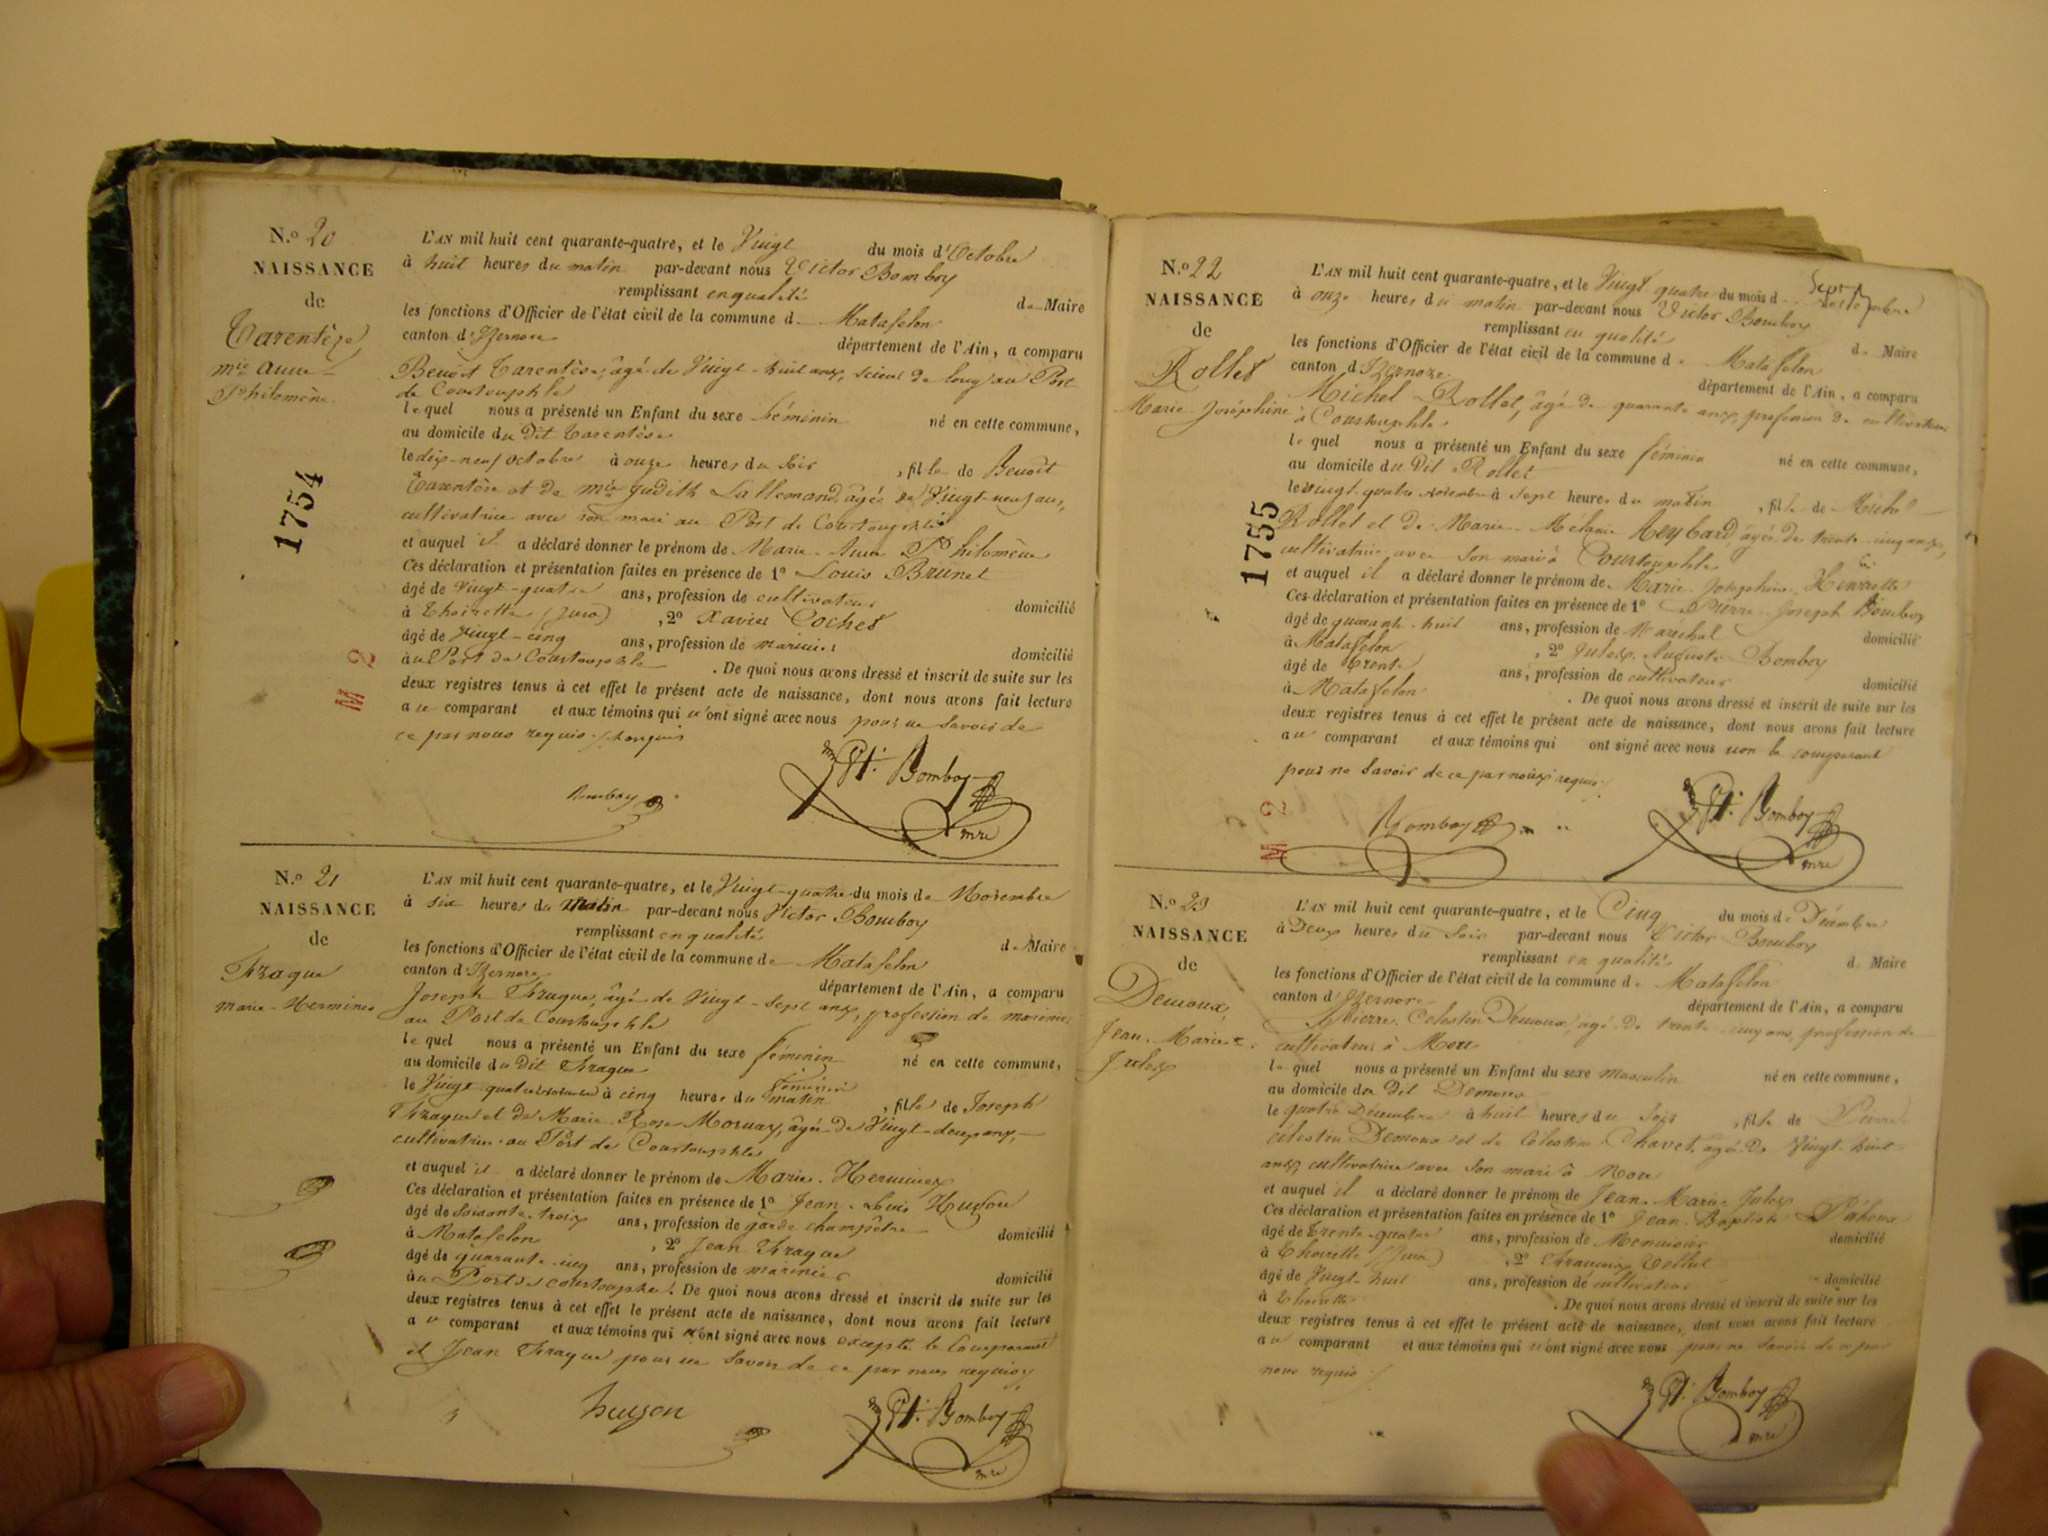 N.o 20
NAISSANCE
de
Tarentèse
mie Anne
Philomène
1754
M 2
L'AN mil huit cent quarante-quatre, et le Vingt du mois d'Octobre
à huit heures du matin par-devant nous Victor Bomboy
remplissant en qualité de Maire
les fonctions d'Officier de l'état civil de la commune d Matafelon
canton d'Izernore département de l'Ain, a comparu
Benoit Tarentèse, âgé de Vingt-huit ans, scieur de long au Port
de Courtouphle
lequel nous a présenté un Enfant du sexe féminin né en cette commune,
au domicile du dit Tarentèse
le dix-neuf octobre à onze heures du soir, fille de Benoit
Tarentèse et de mie Judith Lallemand, âgée de Vingt-neuf ans,
cultivatrice avec son mari au Port de Courtouphle
et auquel il a déclaré donner le prénom de Marie-Anne Philomène
Ces déclaration et présentation faites en présence de 1º Louis Brunet
âgé de vingt-quatre ans, profession de cultivateur domicilié
à Thoirette (Jura), 2º Xavier Cochet
âgé de vingt-cinq ans, profession de marinier domicilié
au Port de Courtouphle. De quoi nous avons dressé et inscrit de suite sur les
deux registres tenus à cet effet le présent acte de naissance, dont nous avons fait lecture
au comparant et aux témoins qui n'ont signé avec nous pour ne savoir de
ce par nous requis
Bomboy
Pt. Bomboy
mre
N.o 21
NAISSANCE
de
Fraque
marie-Hermine
L'AN mil huit cent quarante-quatre, et le Vingt-quatre du mois de Novembre
à six heures du matin par-devant nous Victor Bomboy
remplissant en qualité de Maire
les fonctions d'Officier de l'état civil de la commune de Matafelon
canton d'Izernore département de l'Ain, a comparu
Joseph Fraque, âgé de Vingt-sept ans, profession de marinier
au Port de Courtouphle
lequel nous a présenté un Enfant du sexe féminin né en cette commune,
au domicile du dit Fraque
le Vingt quatre novembre à cinq heures du matin, fille de Joseph
Fraque et de Marie-Rose, âgée de Vingt-deux ans,
cultivatrice au Port de Courtouphle
et auquel il a déclaré donner le prénom de Marie-Hermine
Ces déclaration et présentation faites en présence de 1º Jean-Louis Hugon
âgé de soixante-trois ans, profession de garde champêtre domicilié
à Matafelon, 2º Jean Fraque
âgé de quarante-cinq ans, profession de marinier domicilié
au Port de Courtouphle. De quoi nous avons dressé et inscrit de suite sur les
deux registres tenus à cet effet le présent acte de naissance, dont nous avons fait lecture
au comparant et aux témoins qui ont signé avec nous excepté le comparant
et Jean Fraque pour ne savoir de ce par nous requis
hugon
Pt. Bomboy
mre
N.o 22
NAISSANCE
de
Rollet
Marie Joséphine
1755
M 2
L'AN mil huit cent quarante-quatre, et le Vingt quatre du mois d
à onze heures du matin par-devant nous Victor Bomboy
remplissant en qualité de Maire
les fonctions d'Officier de l'état civil de la commune d Matafelon
canton d'Izernore département de l'Ain, a comparu
Michel Rollet, âgé de quarante ans, profession de cultivateur
à Courtouphle
lequel nous a présenté un Enfant du sexe féminin né en cette commune,
au domicile du dit Rollet
le vingt-quatre novembre à sept heures du matin, fille de Michel
Rollet et de Marie-Mélanie Meynard, âgée de trente-cinq ans,
cultivatrice avec son mari à Courtouphle
et auquel il a déclaré donner le prénom de Marie Joséphine Henriette
Ces déclaration et présentation faites en présence de 1º Pierre-Joseph Bomboy
âgé de quarante-huit ans, profession de Maréchal domicilié
à Matafelon, 2º Jules Auguste Bomboy
âgé de trente ans, profession de cultivateur domicilié
à Matafelon. De quoi nous avons dressé et inscrit de suite sur les
deux registres tenus à cet effet le présent acte de naissance, dont nous avons fait lecture
au comparant et aux témoins qui ont signé avec nous non le comparant
pour ne savoir de ce par nous requis
Bomboy
Pt. Bomboy
mre
N.o 23
NAISSANCE
de
Demoux
Jean-Marie
Jules
L'AN mil huit cent quarante-quatre, et le Cinq du mois de Décembre
à Deux heures du soir par-devant nous Victor Bomboy
remplissant en qualité de Maire
les fonctions d'Officier de l'état civil de la commune d Matafelon
canton d'Izernore département de l'Ain, a comparu
Pierre-Célestin Demoux, âgé de trente cinq ans, profession de
cultivateur à Mons
lequel nous a présenté un Enfant du sexe masculin né en cette commune,
au domicile du dit Demoux
le quatre Décembre à huit heures du soir, fils de Pierre
célestin Demoux et de Célestine Chavet, âgée de Vingt-huit
ans, cultivatrice avec son mari à Mons
et auquel il a déclaré donner le prénom de Jean-Marie-Jules
Ces déclaration et présentation faites en présence de 1º Jean-Baptiste
âgé de trente-quatre ans, profession de Menuisier domicilié
à Thoirette (Jura), 2º
âgé de Vingt-huit ans, profession de cultivateur domicilié
à Thoirette. De quoi nous avons dressé et inscrit de suite sur les
deux registres tenus à cet effet le présent acte de naissance, dont nous avons fait lecture
au comparant et aux témoins qui n'ont signé avec nous pour ne savoir de ce par
nous requis
Pt. Bomboy
mre